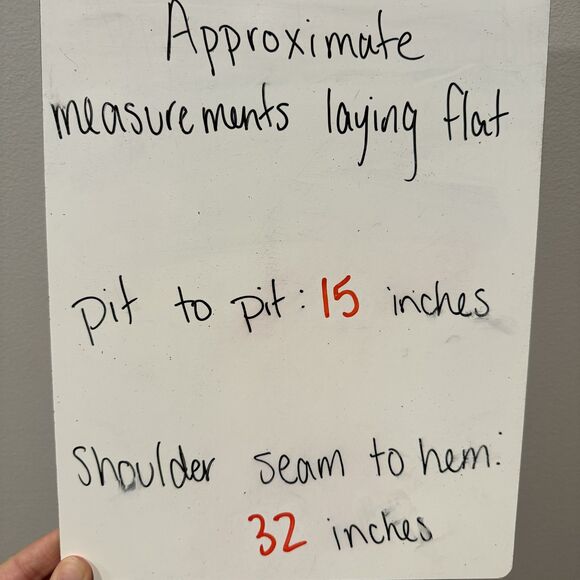 Approximate
measurements laying flat
pit to pit: 15 inches
Shoulder seam to hem:
32 inches